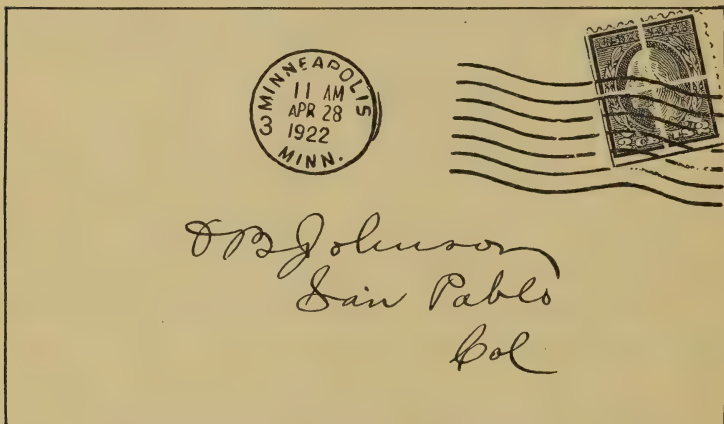 MINNEAPOLIS
11 AM
APR 28
1922
MINN.
3
D B Johnson
San Pablo
Col